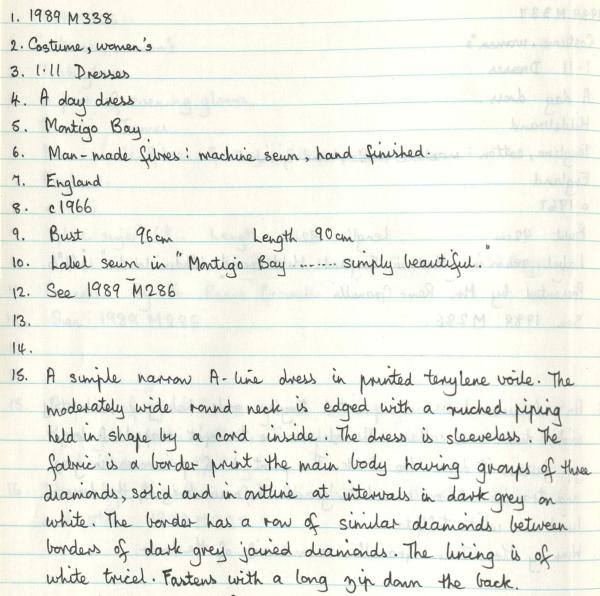 1. 1989 M338
2. Costume, women's
3. 1.11 Dresses
4. A day dress
5. Montigo Bay
6. Man-made fibres: machine sewn, hand finished.
7. England
8. c1966
9. Bust 96cm Length 90cm
10. Label sewn in "Montigo Bay ....... simply beautiful."
12. See 1989 M286
13.
14.
15. A simple narrow A-line dress in printed terylene voile. The
moderately wide round neck is edged with a ruched piping
held in shape by a cord inside. The dress is sleeveless. The
fabric is a border print the main body having groups of three
diamonds, solid and in outline at intervals in dark grey on
white. The border has a row of similar diamonds between
borders of dark grey joined diamonds. The lining is of
white tricel. Fastens with a long zip down the back.